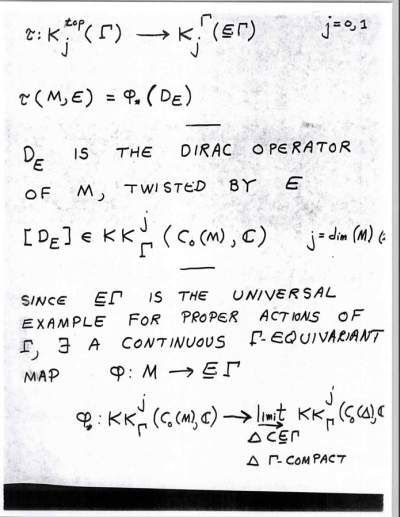 τ: K_j^top(Γ) → K_j^Γ(E̲Γ) j=0,1
τ(M,E) = φ_*(D_E)
D_E IS THE DIRAC OPERATOR
OF M, TWISTED BY E
[D_E] ∈ KK_Γ^j (C₀(M), ℂ) j=dim(M) (2
SINCE E̲Γ IS THE UNIVERSAL
EXAMPLE FOR PROPER ACTIONS OF
Γ, ∃ A CONTINUOUS Γ-EQUIVARIANT
MAP φ: M → E̲Γ
φ_*: KK_Γ^j(C₀(M),ℂ) → limit KK_Γ^j(C₀(Δ),ℂ
Δ⊂E̲Γ
Δ Γ-COMPACT